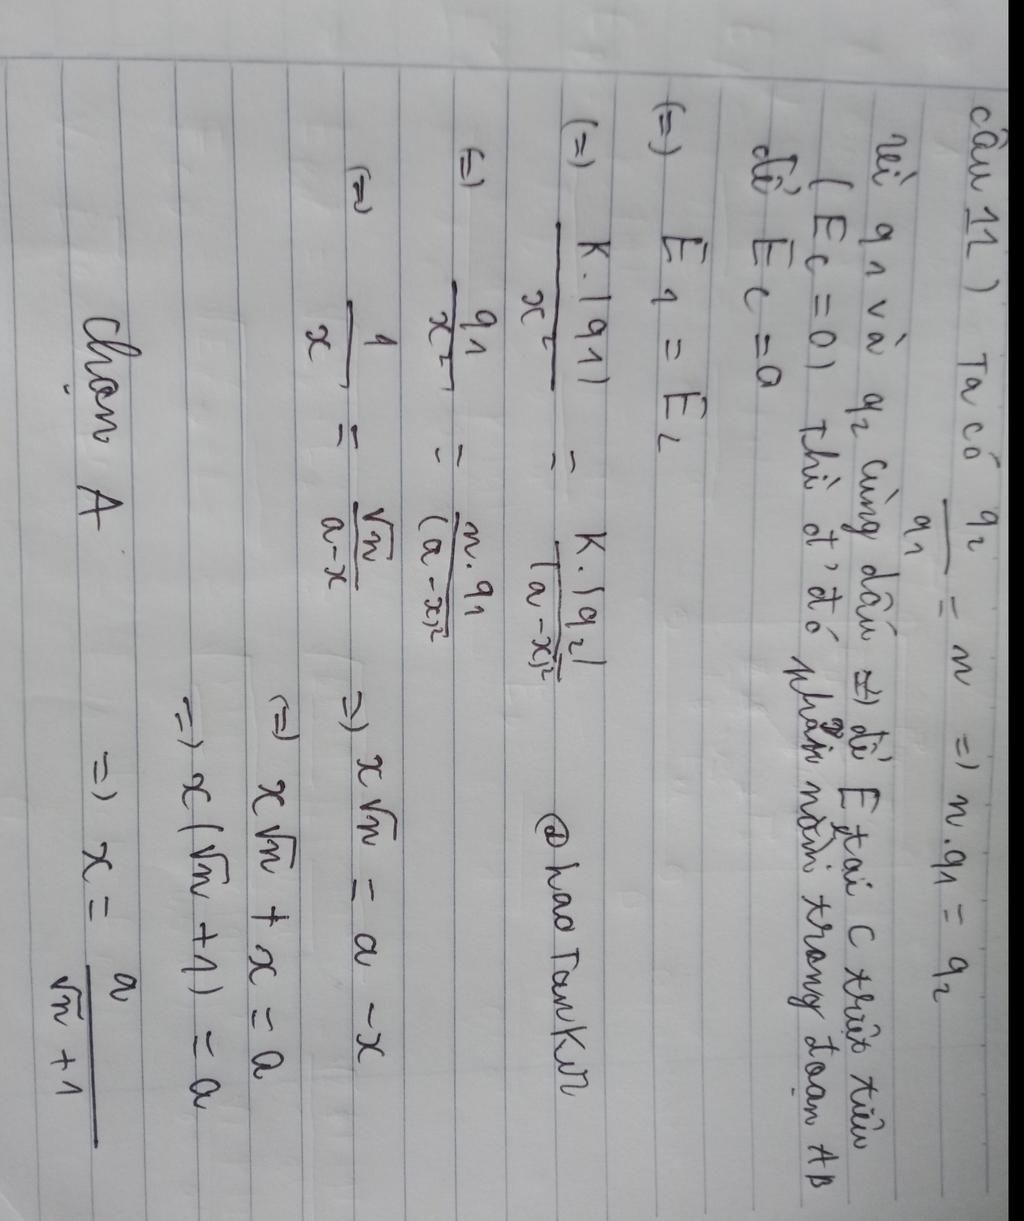 câu 11) Ta có q₂/q₁ = n => n.q₁ = q₂
Vì q₁ và q₂ cùng dấu => để E tại C triệt tiêu
(E_C = 0) Thì đ' đó phải nằm trong đoạn AB
để E_C = 0
(=) E₁ = E₂
(=) K.|q₁|/x² = K.|q₂|/(a-x)²
@haoTanKur
(=) q₁/x² = n.q₁/(a-x)²
(=) 1/x = √n/(a-x) => x√n = a - x
(=) x√n + x = a
=> x(√n + 1) = a
chọn A => x = a/(√n + 1)